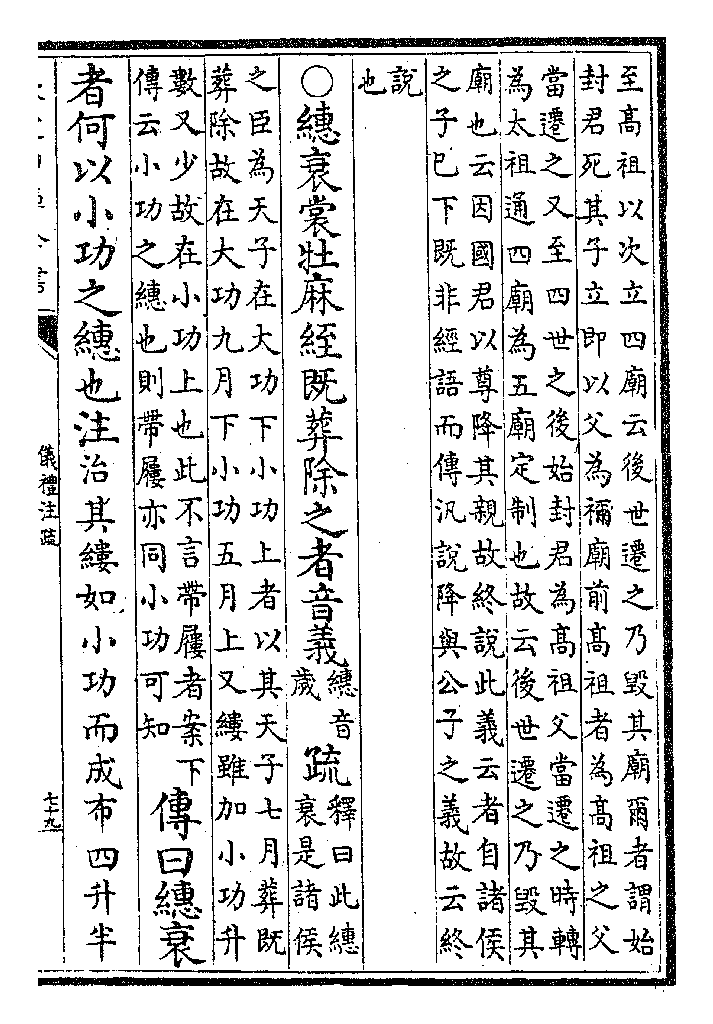 至高祖以次立四廟云後世遷之乃毀其廟爾者謂始
封君死其子立即以父為禰廟前高祖者為高祖之父
當遷之又至四世之後始封君為高祖父當遷之時轉
為太祖通四廟為五廟定制也故云後世遷之乃毀其
廟也云因國君以尊降其親故終說此義云者自諸侯
之子已下既非經語而傳汎說降與公子之義故云終
說
也
○繐衰裳牡麻絰既葬除之者音義
繐音
歲
疏
釋曰此繐
衰是諸侯
之臣為天子在大功下小功上者以其天子七月葬既
葬除故在大功九月下小功五月上又縷雖加小功升
數又少故在小功上也此不言帶屨者案下
傳云小功之繐也則帶屨亦同小功可知
傳曰繐衰
者何以小功之繐也注治其縷如小功而成布四升半
儀禮注疏
七十九